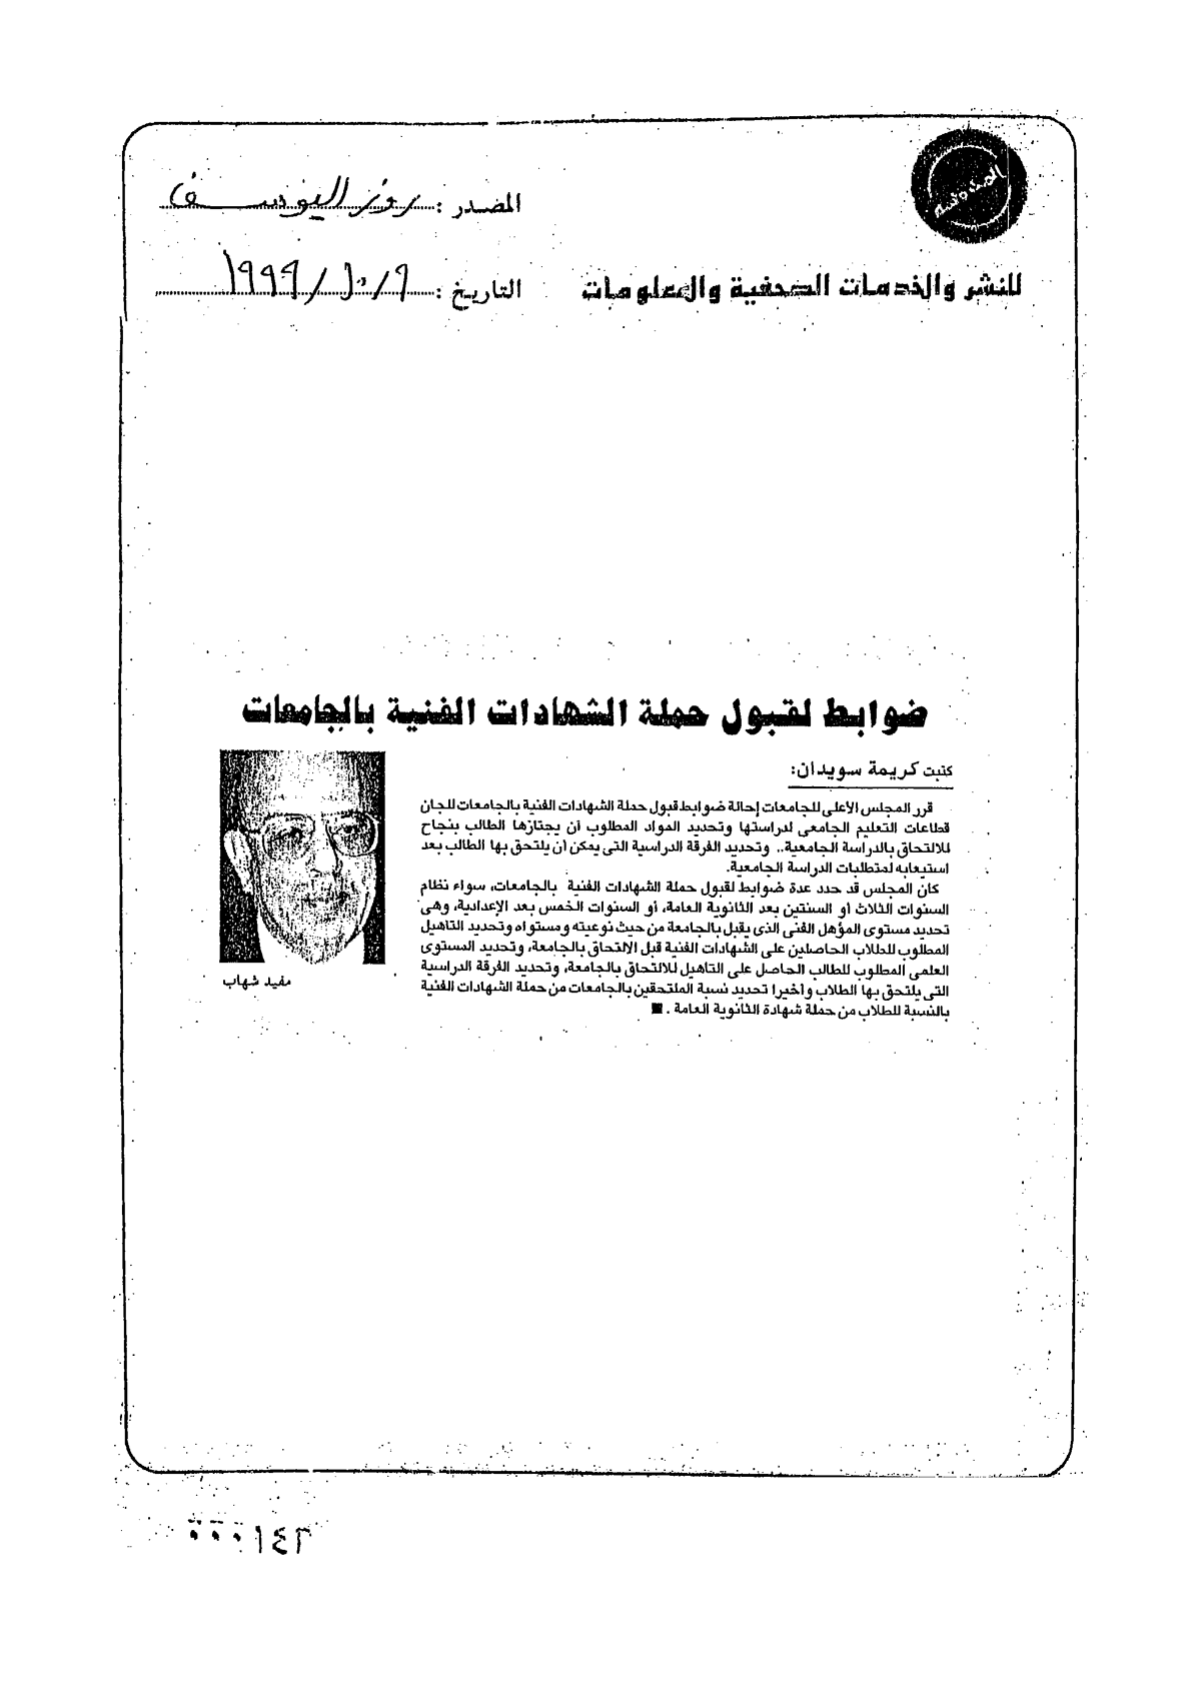 المصدر : روز اليوسف
للنشر والخدمات الصحفية والمعلومات
التاريخ : ٩ / ١٠ / ١٩٩٩
ضوابط لقبول حملة الشهادات الفنية بالجامعات
كتبت كريمة سويدان:
قرر المجلس الأعلى للجامعات إحالة ضوابط قبول حملة الشهادات الفنية بالجامعات للجان
قطاعات التعليم الجامعى لدراستها وتحديد المواد المطلوب أن يجتازها الطالب بنجاح
للالتحاق بالدراسة الجامعية.. وتحديد الفرقة الدراسية التى يمكن أن يلتحق بها الطالب بعد
استيعابه لمتطلبات الدراسة الجامعية.
كان المجلس قد حدد عدة ضوابط لقبول حملة الشهادات الفنية بالجامعات، سواء نظام
السنوات الثلاث أو السنتين بعد الثانوية العامة، أو السنوات الخمس بعد الإعدادية، وهى
تحديد مستوى المؤهل الفنى الذى يقبل بالجامعة من حيث نوعيته ومستواه وتحديد التاهيل
المطلوب للطلاب الحاصلين على الشهادات الفنية قبل الالتحاق بالجامعة، وتحديد المستوى
العلمى المطلوب للطالب الحاصل على التاهيل للالتحاق بالجامعة، وتحديد الفرقة الدراسية
التى يلتحق بها الطلاب وأخيرا تحديد نسبة الملتحقين بالجامعات من حملة الشهادات الفنية
بالنسبة للطلاب من حملة شهادة الثانوية العامة . ■
مفيد شهاب